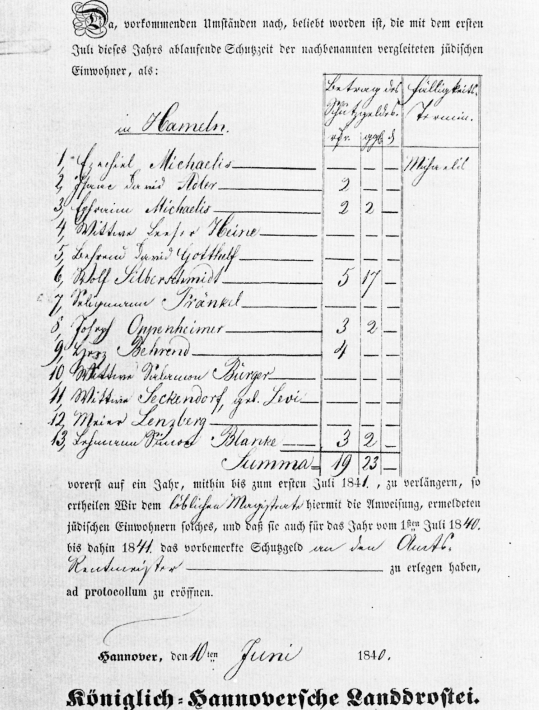 Da, vorkommenden Umständen nach, beliebt worden ist, die mit dem ersten
Juli dieses Jahrs ablaufende Schutzzeit der nachbenannten vergleiteten jüdischen
Einwohner, als:
Betrag des Schutzgeldes. Fälligkeits-Termin.
in Hameln. rthr. ggl. d
1, Ezechiel Michaelis — — — Michaelis
2, Isaac David Adler 2 — —
3, Ephraim Michaelis 2 2 —
4, Wittwe Leeser Heine — — —
5, Behrend David Gotthelf — — —
6, Wolf Silberschmidt 5 17 —
7, Seligmann Fränkel — — —
8, Joseph Oppenheimer 3 2 —
9, Herz Behrend 4 — —
10 Wittwe Salomon Bürger — — —
11, Wittwe Seckendorf, geb. Levi — — —
12, Meier Lenzberg — — —
13, Lehmann Simon Blanke 3 2 —
Summa 19 23 —
vorerst auf ein Jahr, mithin bis zum ersten Juli 1841, zu verlängern, so
ertheilen Wir dem löblichen Magistrate hiermit die Anweisung, ermeldeten
jüdischen Einwohnern solches, und daß sie auch für das Jahr vom 1sten Juli 1840.
bis dahin 1841. das vorbemerkte Schutzgeld an den Amts-
Rentmeister zu erlegen haben,
ad protocollum zu eröffnen.
Hannover, den 10ten Juni 1840.
Königlich-Hannoversche Landdrostei.